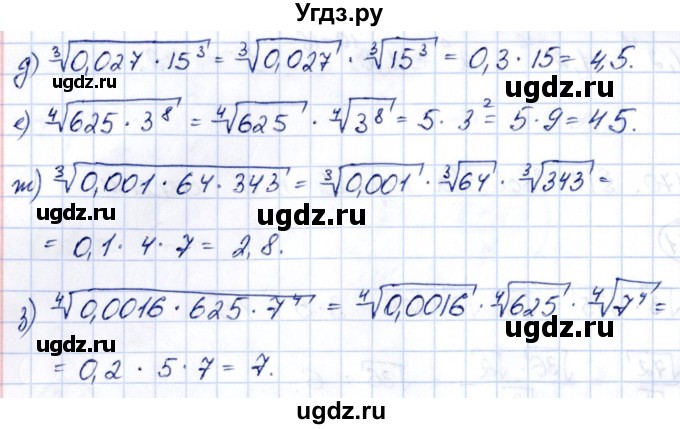 Угдз.ру
д) ∛(0,027 · 15³) = ∛0,027 · ∛15³ = 0,3 · 15 = 4,5.
ugdz.ru ugdz.ru
е) ∜(625 · 3⁸) = ∜625 · ∜3⁸ = 5 · 3² = 5 · 9 = 45.
ugdz.ru
ж) ∛(0,001 · 64 · 343) = ∛0,001 · ∛64 · ∛343 =
ugdz.ru ugdz.ru
= 0,1 · 4 · 7 = 2,8.
ugdz.ru
з) ∜(0,0016 · 625 · 7⁴) = ∜0,0016 · ∜625 · ∜7⁴ =
ugdz.ru ugdz.ru
= 0,2 · 5 · 7 = 7.
ugdz.ru